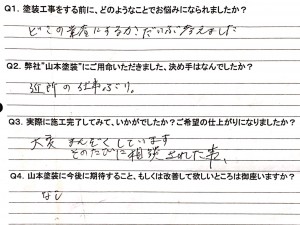 Q1. 塗装工事をする前に、どのようなことでお悩みになられましたか?
どこの業者にするかだいぶ考えました
Q2. 弊社“山本塗装”にご用命いただきました、決め手はなんでしたか?
近所の仕事ぶり。
Q3. 実際に施工完了してみて、いかがでしたか?ご希望の仕上がりになりましたか?
大変まんぞくしています
そのたびに相談された事、
Q4. 山本塗装に今後に期待すること、もしくは改善して欲しいところは御座いますか?
なし